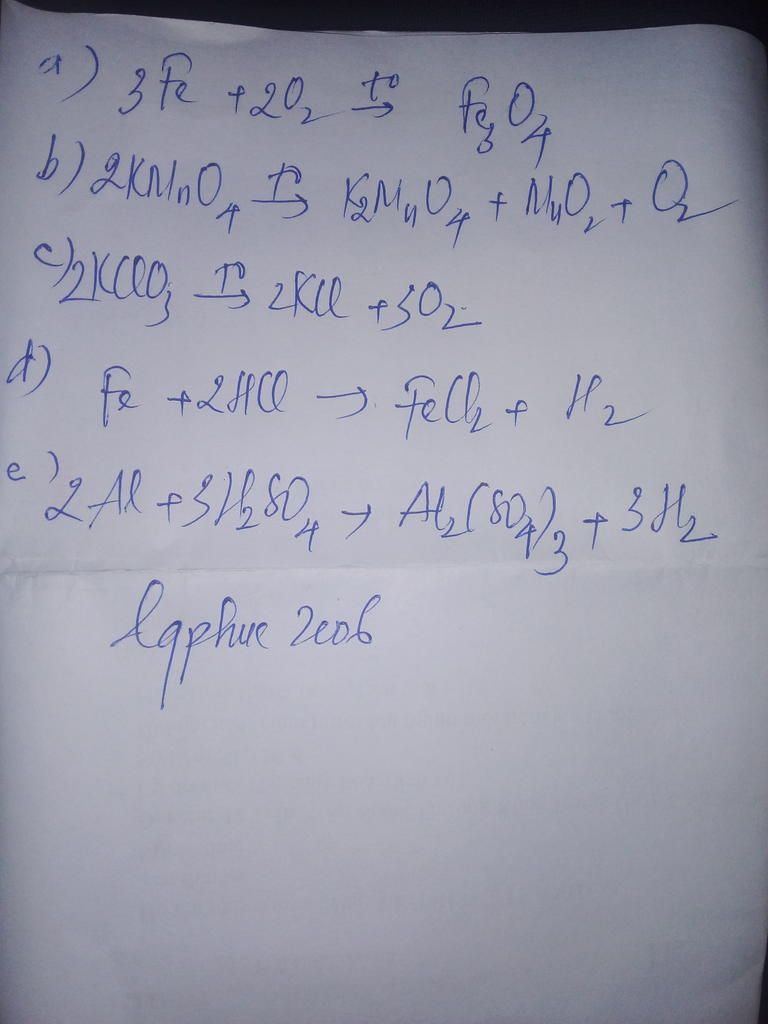 a) 3Fe + 2O₂ →(t°) Fe₃O₄
b) 2KMnO₄ →(t°) K₂MnO₄ + MnO₂ + O₂
c) 2KClO₃ →(t°) 2KCl + 3O₂
d) Fe + 2HCl → FeCl₂ + H₂
e) 2Al + 3H₂SO₄ → Al₂(SO₄)₃ + 3H₂